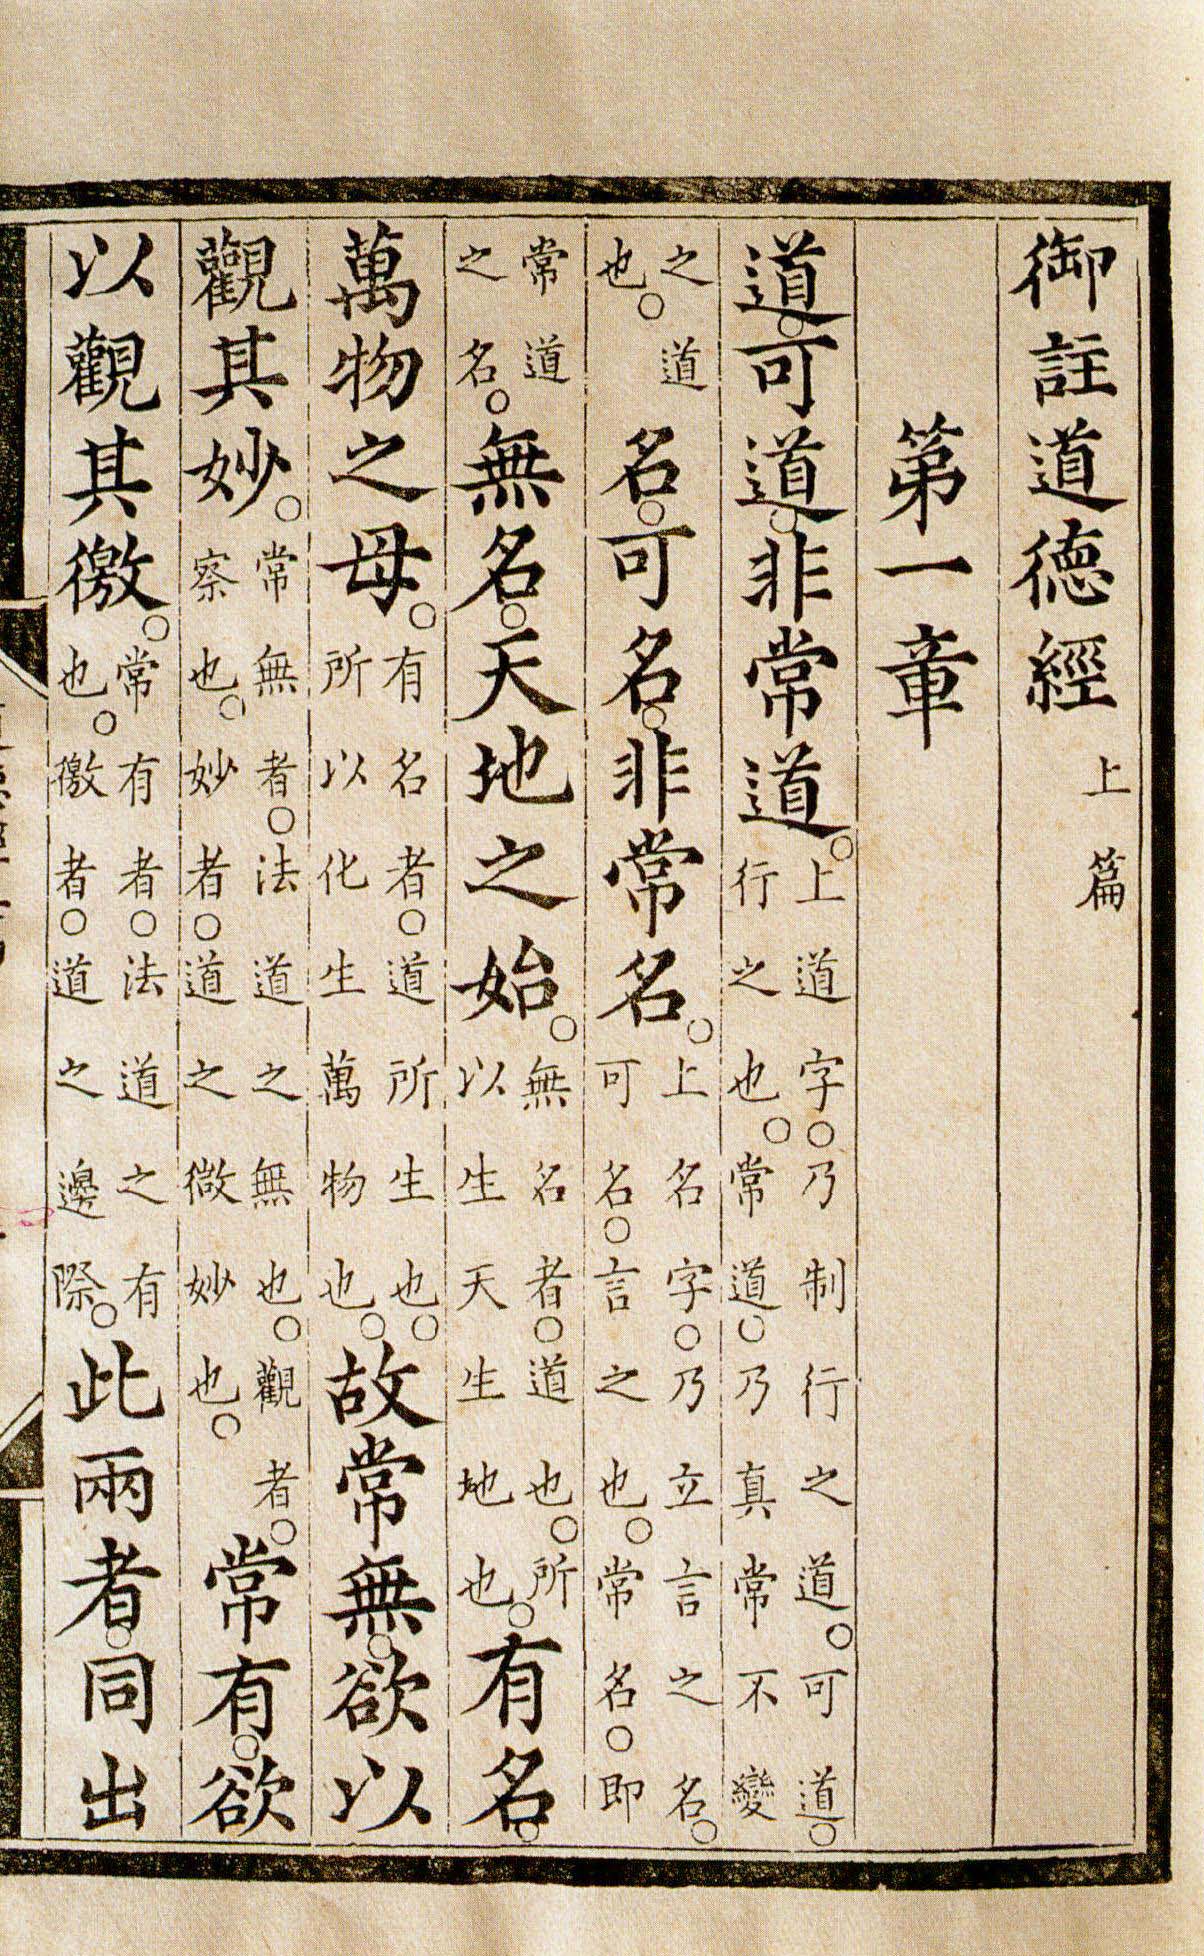 御註道德經上篇
第一章
道。可道。非常道。上道字。乃制行之道。可道。行之也。常道。乃真常不變
之道也。名。可名。非常名。上名字。乃立言之名。可名。言之也。常名。即
常道之名。無名。天地之始。無名者。道也。所以生天生地也。有名。
萬物之母。有名者。道所生也。所以化生萬物也。故常無。欲以
觀其妙。常無者。法道之無也。觀者。察也。妙者。道之微妙也。常有。欲
以觀其徼。常有者。法道之有也。徼者。道之邊際。此兩者。同出